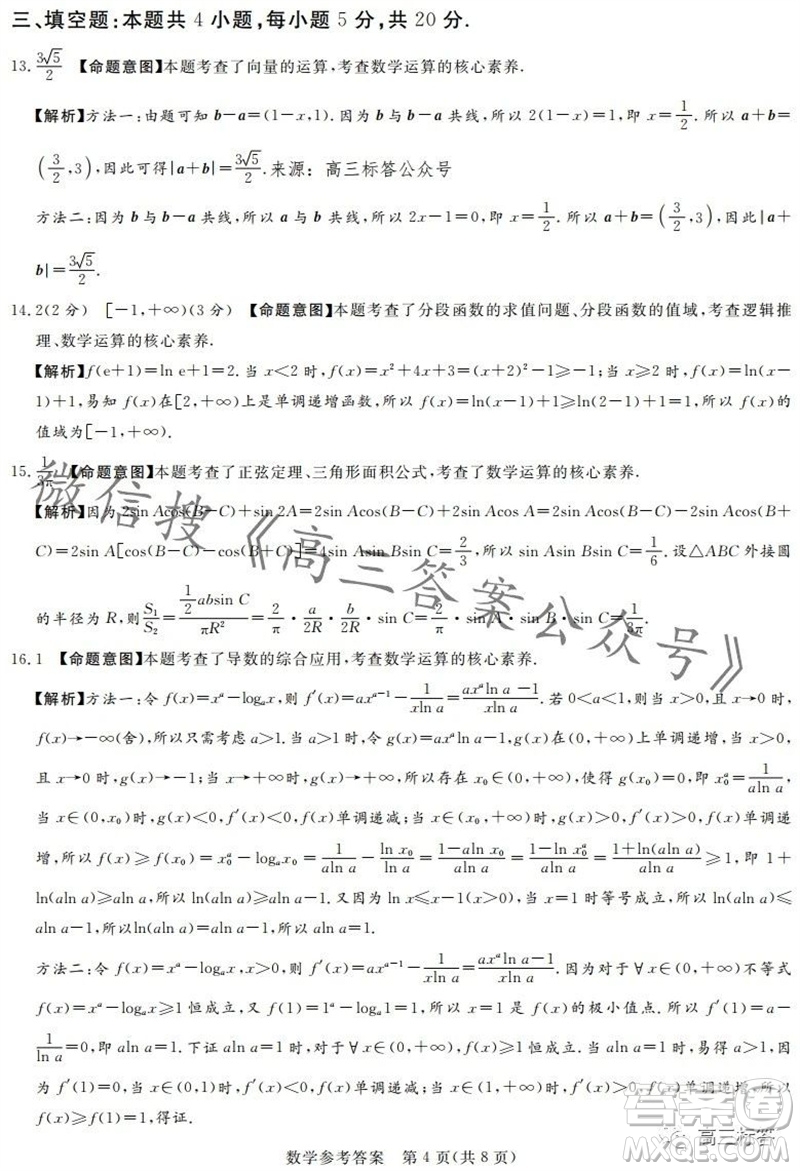 三、填空题:本题共 4 小题,每小题 5 分,共 20 分.
13. 3√5/2 【命题意图】本题考查了向量的运算,考查数学运算的核心素养.
【解析】方法一:由题可知 b-a=(1-x,1). 因为 b 与 b-a 共线,所以 2(1-x)=1,即 x=1/2. 所以 a+b=
(3/2,3),因此可得|a+b|=3√5/2. 来源：高三标答公众号
方法二:因为 b 与 b-a 共线,所以 a 与 b 共线,所以 2x-1=0,即 x=1/2. 所以 a+b=(3/2,3),因此|a+
b|=3√5/2.
14. 2(2 分) [-1,+∞)(3 分) 【命题意图】本题考查了分段函数的求值问题、分段函数的值域,考查逻辑推
理、数学运算的核心素养.
【解析】f(e+1)=ln e+1=2. 当 x<2 时,f(x)=x²+4x+3=(x+2)²-1≥-1;当 x≥2 时,f(x)=ln(x-
1)+1,易知 f(x)在[2,+∞)上是单调递增函数,所以 f(x)=ln(x-1)+1≥ln(2-1)+1=1,所以 f(x)的
值域为[-1,+∞).
15. 1/3π 【命题意图】本题考查了正弦定理、三角形面积公式,考查了数学运算的核心素养.
【解析】因为 2sin Acos(B-C)+sin 2A=2sin Acos(B-C)+2sin Acos A=2sin Acos(B-C)-2sin Acos(B+
C)=2sin A[cos(B-C)-cos(B+C)]=4sin Asin Bsin C=2/3,所以 sin Asin Bsin C=1/6. 设△ABC 外接圆
的半径为 R,则 S₁/S₂=(1/2 absin C)/πR²=2/π·a/2R·b/2R·sin C=2/π·sin A·sin B·sin C=1/3π.
16. 1 【命题意图】本题考查了导数的综合应用,考查数学运算的核心素养.
【解析】方法一:令 f(x)=xᵃ-logₐx,则 f′(x)=axᵃ⁻¹-1/(xln a)=(axᵃln a-1)/(xln a). 若 0<a<1,则当 x>0,且 x→0 时,
f(x)→-∞(舍),所以只需考虑 a>1. 当 a>1 时,令 g(x)=axᵃln a-1,所以 g(x)在(0,+∞)上单调递增,当 x>0
且 x→0 时,g(x)→-1;当 x→+∞时,g(x)→+∞,所以存在 x₀∈(0,+∞),使得 g(x₀)=0,即 x₀ᵃ=1/(aln a),
当 x∈(0,x₀)时,g(x)<0,f′(x)<0,f(x)单调递减;当 x∈(x₀,+∞)时,g(x)>0,f′(x)>0,f(x)单调递
增,所以 f(x)≥f(x₀)=x₀ᵃ-logₐx₀=1/(aln a)-ln x₀/ln a=(1-aln x₀)/(aln a)=(1-ln x₀ᵃ)/(aln a)=(1+ln(aln a))/(aln a)≥1,即 1+
ln(aln a)≥aln a,所以 ln(aln a)≥aln a-1. 又因为 ln x≤x-1(x>0),当 x=1 时等号成立,所以 ln(aln a)≤
aln a-1,所以ln(aln a)=aln a-1,所以aln a=1.
方法二:令 f(x)=xᵃ-logₐx,x>0,则 f′(x)=axᵃ⁻¹-1/(xln a)=(axᵃln a-1)/(xln a). 因为对于∀x∈(0,+∞)不等式
f(x)=xᵃ-logₐx≥1 恒成立,又 f(1)=1ᵃ-logₐ1=1,所以 x=1 是 f(x)的极小值点. 所以 f′(1)=a-
1/ln a=0,即 aln a=1. 下证 aln a=1 时,对于∀x∈(0,+∞),f(x)≥1 恒成立. 当 aln a=1 时,可知 a>1. 因
为 f′(1)=0,当 x∈(0,1)时,f′(x)<0,f(x)单调递减;当 x∈(1,+∞)时,f′(x)>0,f(x)单调递增,所以
f(x)≥f(1)=1,得证.
数学参考答案 第 4 页(共 8 页)
微信搜《高三答案公众号》
高三标答
答案圈
MXQE.COM